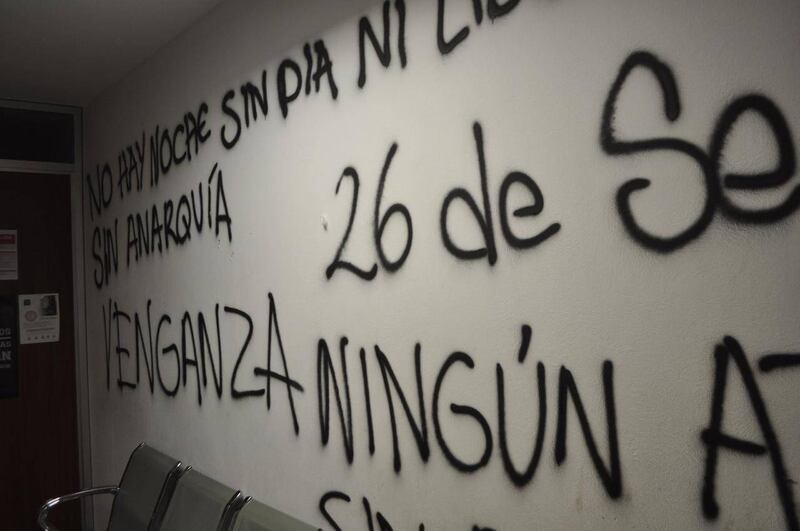 NO HAY NOCHE SIN DIA NI LIB
SIN ANARQUÍA
26 de Se
VENGANZA NINGÚN AT
SIN